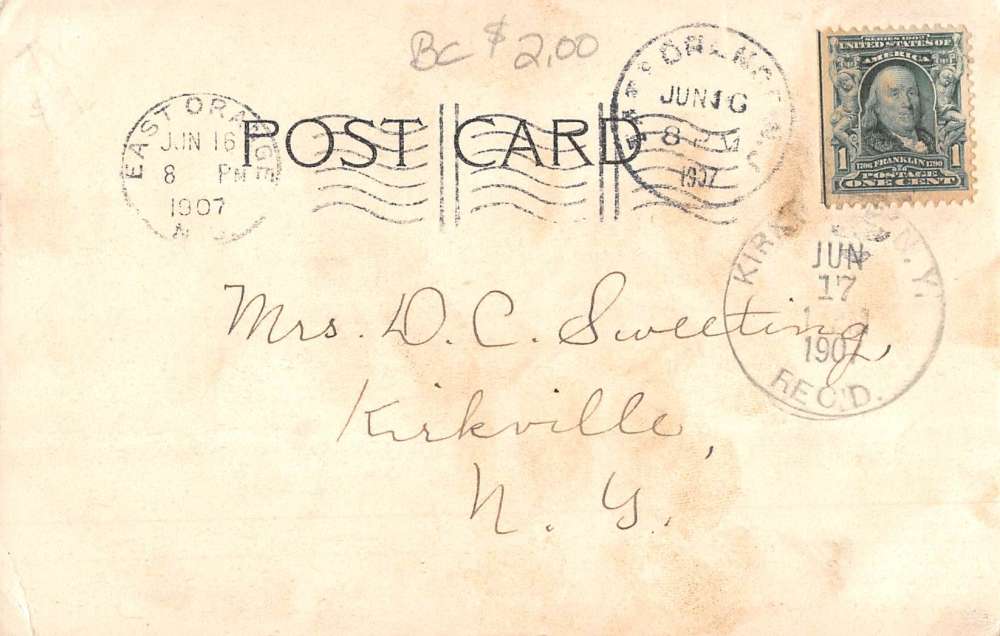 BC $2.00
EAST ORANGE
JUN 16
8 PM
1907
N.J.
POST CARD
JUN 16
8
1907
SERIES 1902
UNITED STATES OF
AMERICA
1 1706 FRANKLIN 1790 1
POSTAGE
ONE CENT
N.Y.
JUN
17
1907
REC'D.
Mrs. D. C. Sweeting,
Kirkville,
N. Y.